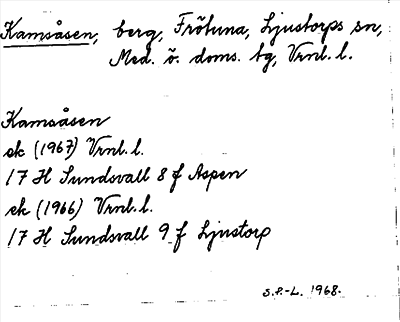 Kamsåsen, berg, Frötuna, Ljustorps sn,
Med. ö. doms. tg, Vrnl. l.
Kamsåsen
ek (1967) Vrnl. l.
17 H Sundsvall 8 f Aspen
ek (1966) Vrnl. l.
17 H Sundsvall 9 f Ljustorp
S.F.-L. 1968.